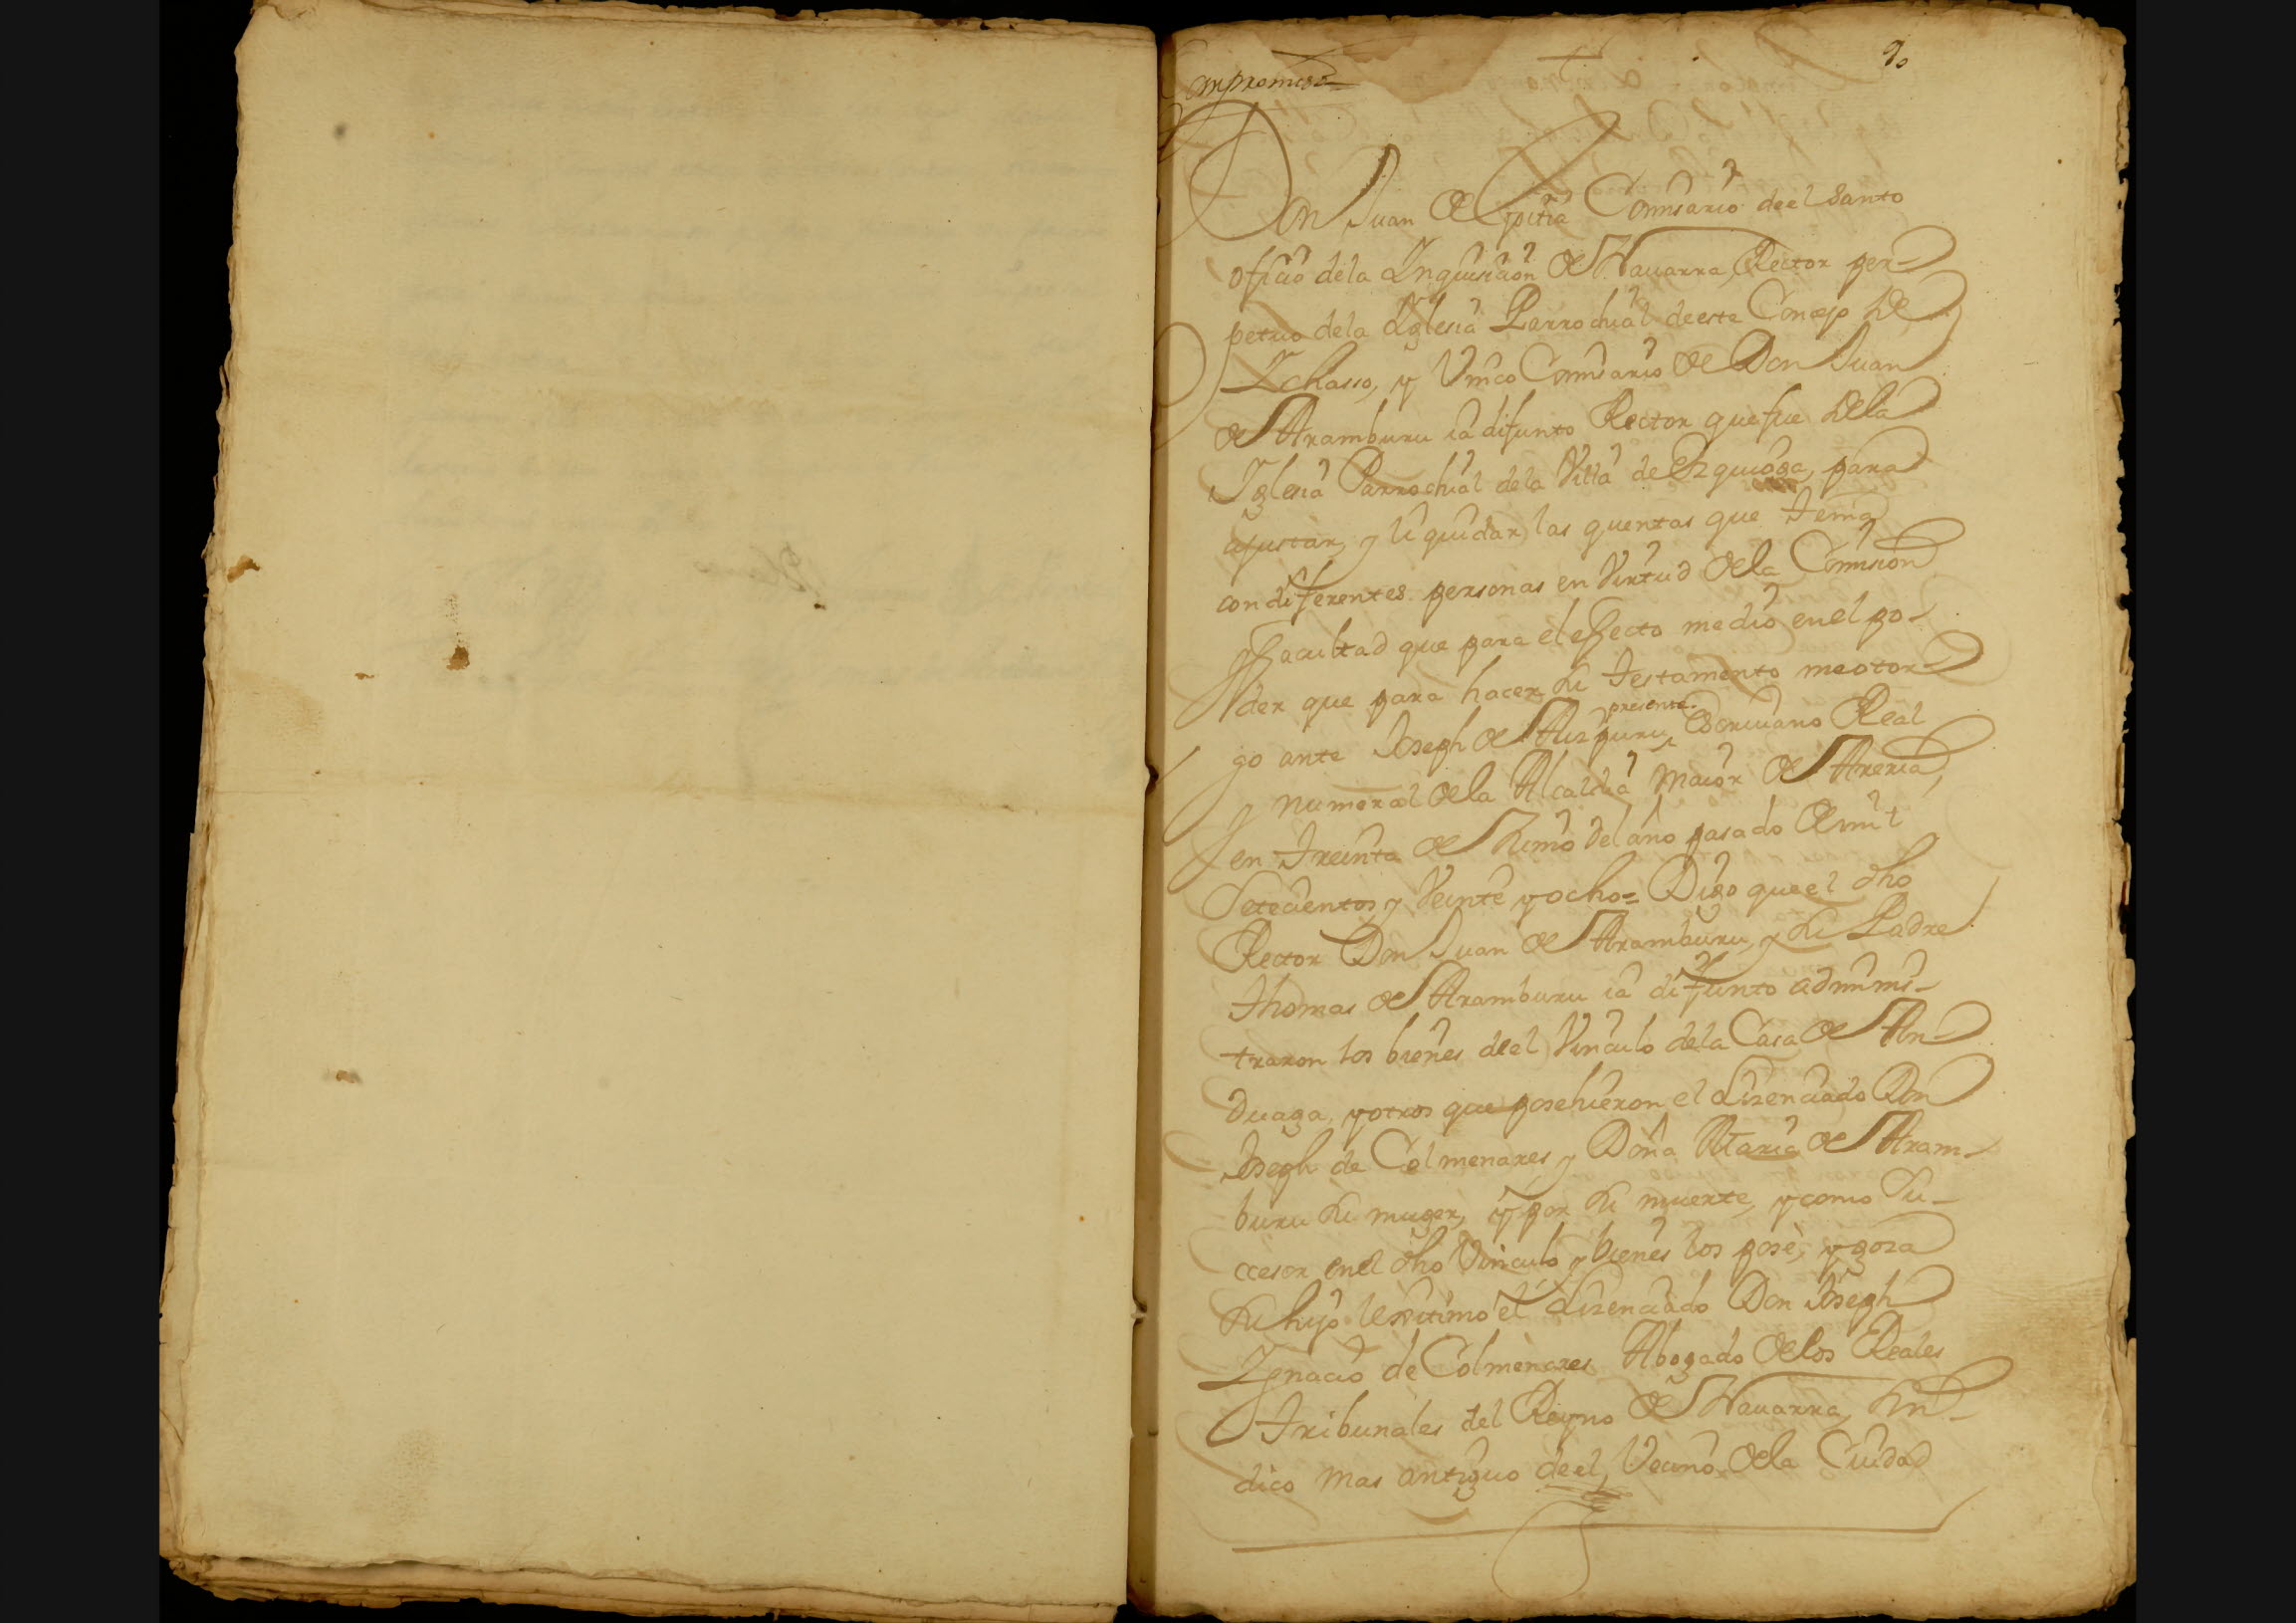 Compromiso=
90
Don Juan de Epitia Comisario deel Santo
oficio dela Inquisicion de Nauarra, Rector per-
petuo dela Iglesia Parrochial deeste Concejo de
Ichasso, y Vnico Comisario de Don Juan
de Aramburu ia difunto Rector que fue dela
Iglesia Parrochial dela Villa de Ezquioga, para
ajustar, y liquidar las quentas que tenia
con diferentes personas en Virtud dela Comision
y facultad que para el efecto me dio en el po-
der que para hacer su testamento me otor-
go ante Joseph de Aizpuru presente Escriuano Real
y numeral dela Alcaldia maior de Areria,
en treinta de Junio del año pasado de mil
Setecientos y Veinte y ocho= Digo que el dho
Rector Don Juan de Aramburu, y su Padre
Thomas de Aramburu ia difunto adminis-
traron los bienes deel Vinculo dela Casa de An-
duaga, y otros que posehieron el Lizenciado Don
Joseph de Colmenares, y Doña Maria de Aram-
buru su muger, y por su muerte, y como Su-
ccesor en el dho Vinculo, y bienes los posè, y goza
su hijo lexitimo el Lizenciado Don Joseph
Ignacio de Colmenares Abogado delos Reales
Tribunales del Reyno de Nauarra, Sin-
dico mas antiguo deel, Vecino dela Ciudad